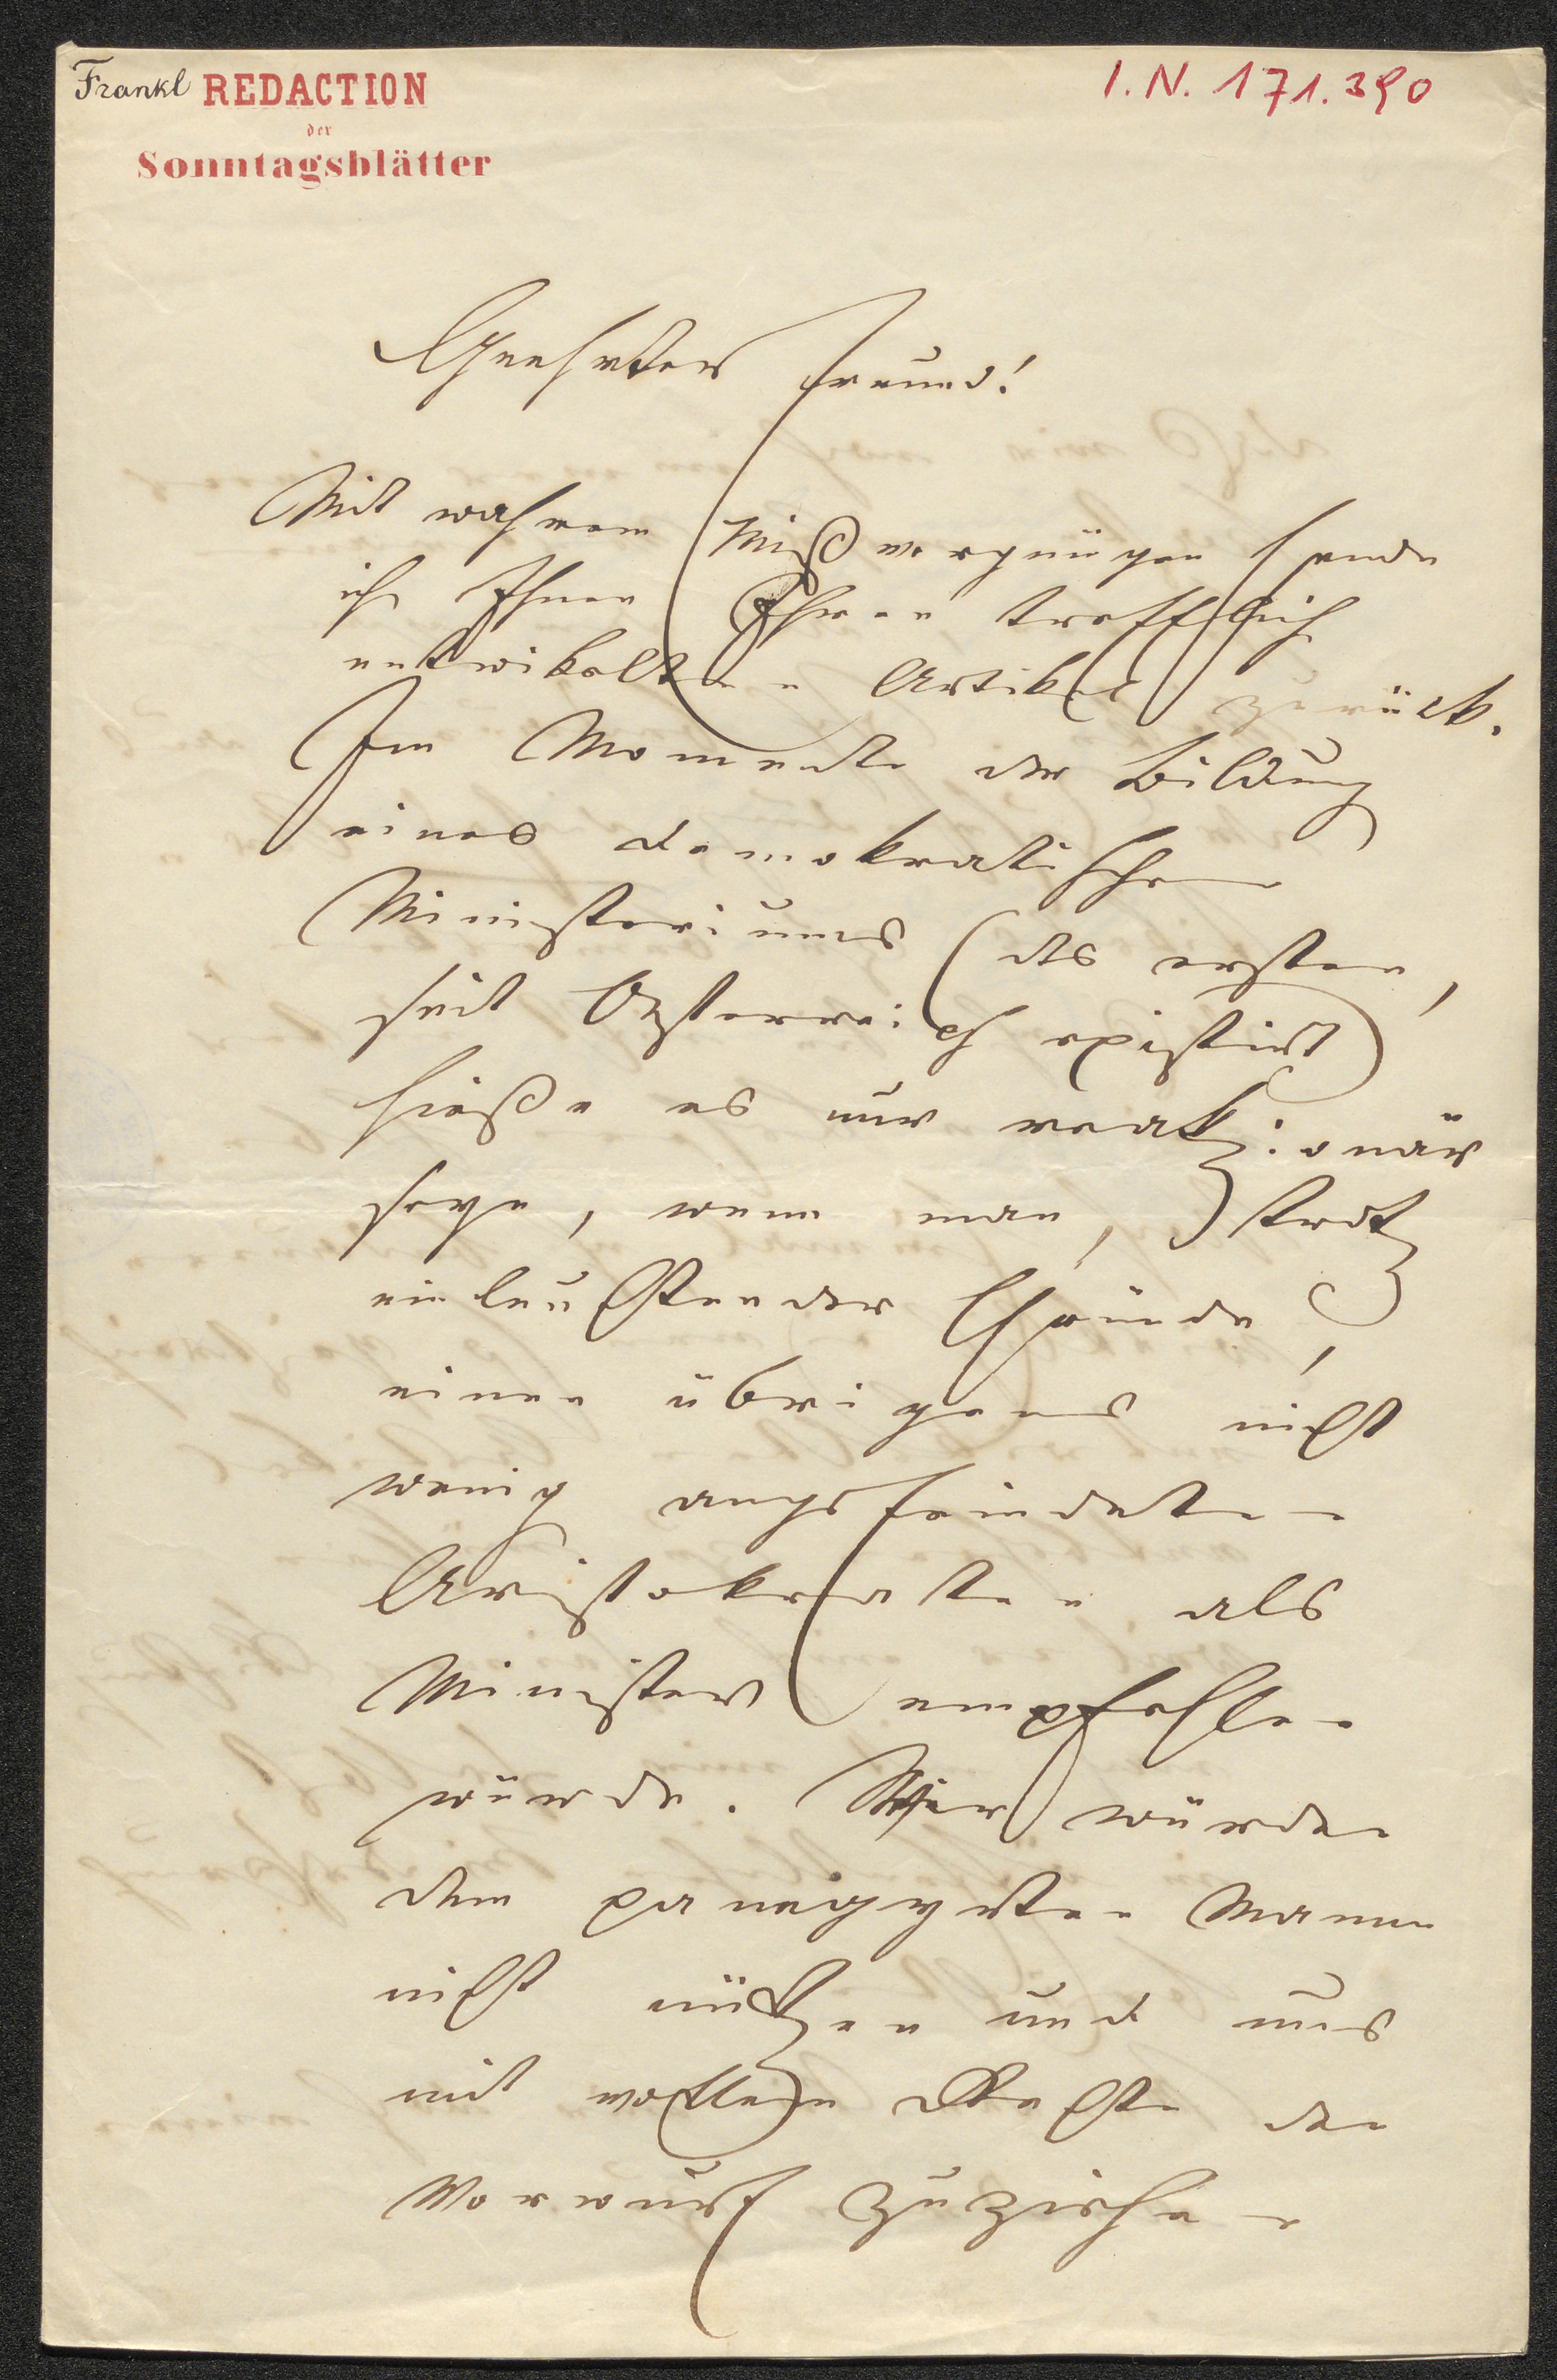 Frankl REDACTION
der
Sonntagsblätter
I.N. 171.390
Geehrter Freund!
Mit wahrem Mißvergnügen sende
ich Ihnen Ihren trefflich
entwikelten Artikel zurück.
Im Momente der Bildung
eines demokratischen
Ministeriums (des ersten,
seit Österreich existirt)
hieße es nur reakzionär
seyn, wenn man, trotz
einleuchtender Gründe,
einen übrigens nicht
wenig angefeindeten
Aristokraten als
Minister empfehlen
würde. Wir würden
dem Manne
nicht nützen und uns
mit vollem Rechte den
Vorwurf zuziehen